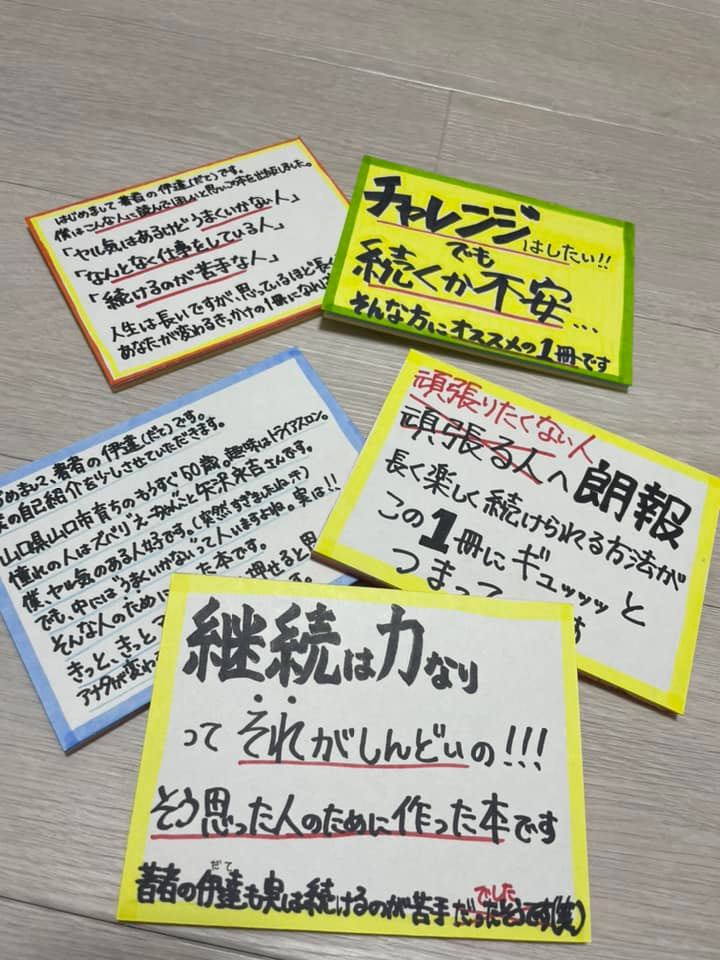 はじめまして著者の伊達(だて)です。
僕はこんな人に読んでほしいと思いこの本を出版しました。
「ヤル気はあるけどうまくいかない人」
「なんとなく仕事をしている人」
「続けるのが苦手な人」
人生は長いですが、思っているほど長く
あなたが変わるきっかけの1冊になれば
チャレンジはしたい!!
でも
続くか不安…
そんな方にオススメの1冊です
じめまして、著者の伊達(だて)です。
の自己紹介を少しさせていただきます。
山口県山口市育ちのもうすぐ50歳。趣味はトライアスロン。
憧れの人はズバリ!えーちゃんこと矢沢永吉さんです。
僕、ヤル気のある人好です。(突然すぎましたね汗)
でも、中にはうまくいかないって人いますよね。実は!!
そんな人のために
た本です。
押せると思
きっと、きっと
アナタが変わ
頑張りたくない人
頑張る人へ朗報
長く楽しく続けられる方法が
この1冊にギュッッッと
つまって
す
継続は力なり
って それがしんどいの!!!
そう思った人のために作った本です
著者の伊達(だて)も実は続けるのが苦手だったそうです(笑)
でした